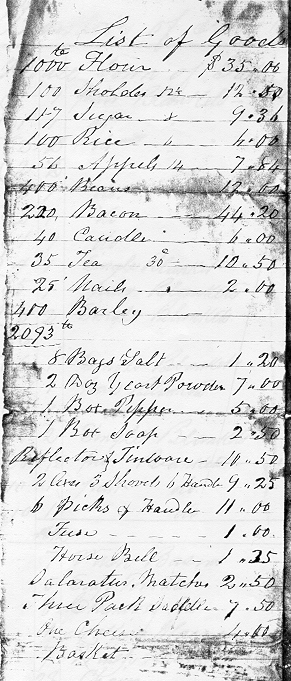 List of Goods
1000 lb Flour $35.00
100 Sholder 12c 12.50
117 Sugar 8 9.36
100 Rice 6 6.00
56 Appels 14 7.84
400 Beans 12.00
220 Bacon 44.20
40 Candle 6.00
35 Tea 30c 10.50
25 Nails 2.00
400 Barley
2093 lb
8 Bags Salt 1.20
2 Doz Yeast Powder 7.00
1 Box Pepper 5.00
1 Box Soap 2.50
Reflector & Tinware 10.50
2 Axes 3 Shovels 6 Handle 9.25
6 Picks & Handle 11.00
Fuse 1.00
Horse Bell 1.25
Salaratus, Matches 2.50
Three Pack Saddle 7.50
One Cheese 4.00
Basket